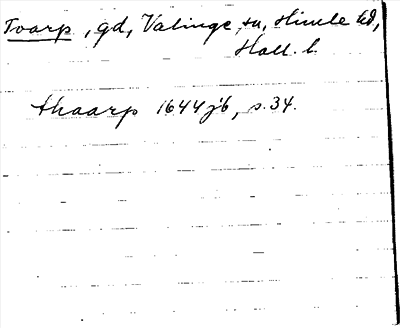 Tvarp, gd, Valinge sn, Himle hd,
Hall. l.
thaarp 1644 jb, s. 34.